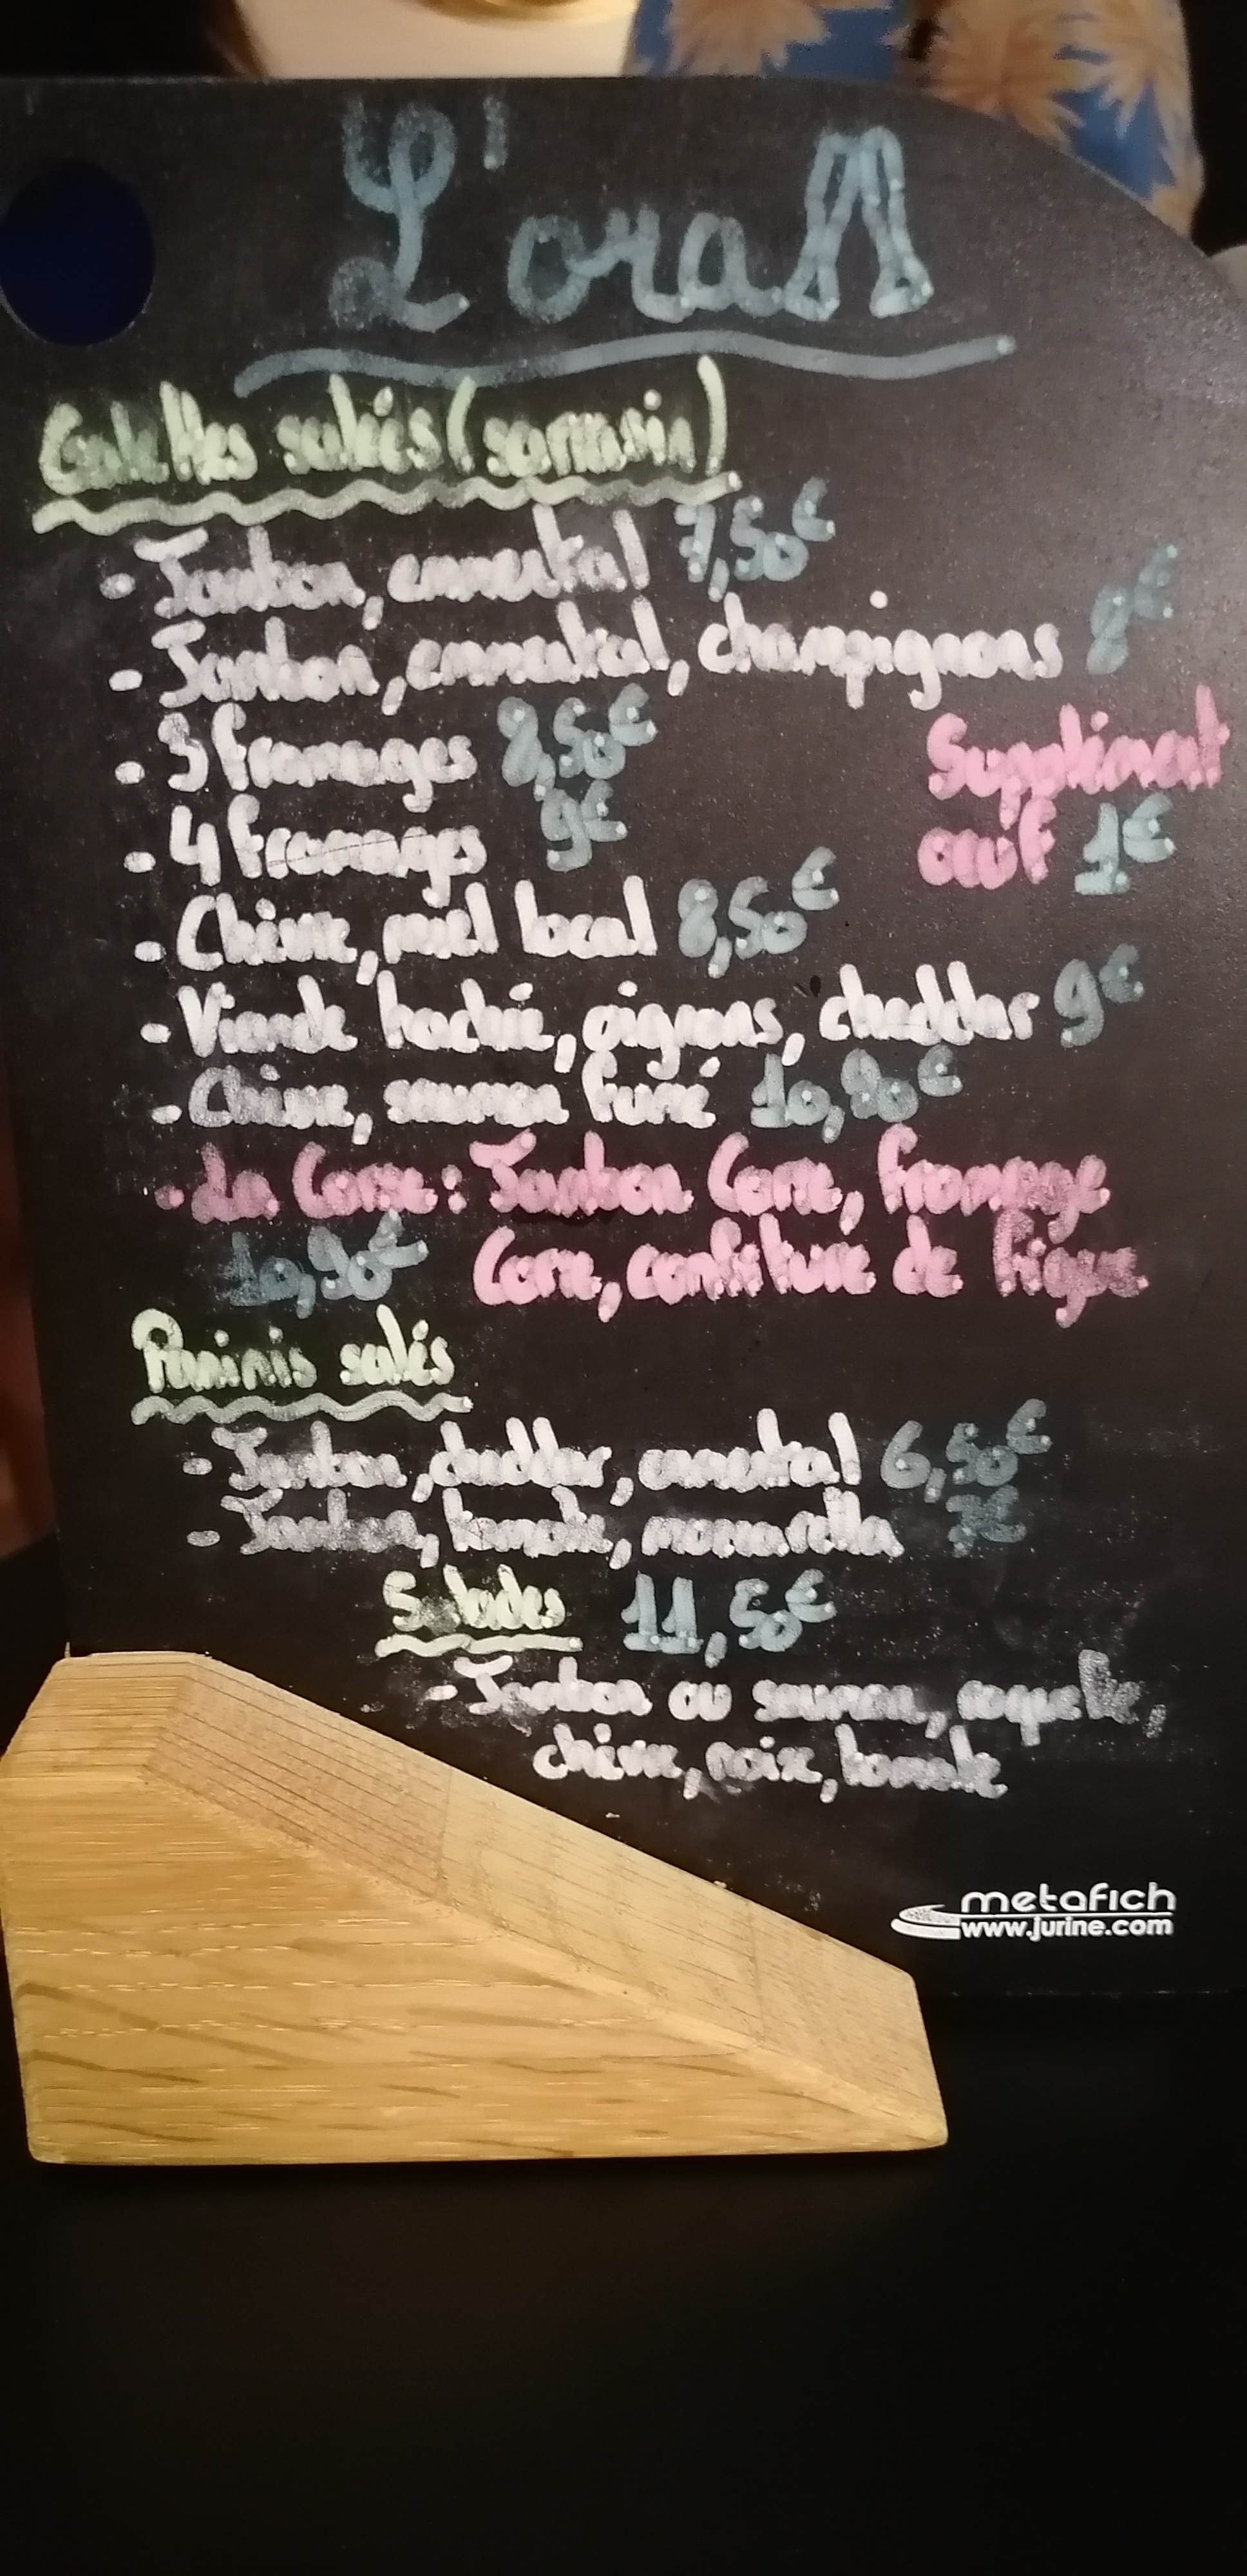 L'oraM
Galettes salées (sarrasin)
• Jambon, emmental 7,50€
- Jambon, emmental, champignons 8€
• 3 fromages 8,50€
Supplément
• 4 fromages 9€
oeuf 1€
• Chèvre, miel local 8,50€
• Viande hachée, oignons, cheddar 9€
- Chèvre, saumon fumé 10,90€
• La Corse: Jambon Corse, fromage
10,90€ Corse, confiture de figue
Paninis salés
- Jambon, cheddar, emmental 6,50€
- Jambon, tomate, mozzarella 7€
Salades 11,50€
- Jambon ou saumon, roquette,
chèvre, noix, tomate
metafich
www.jurine.com